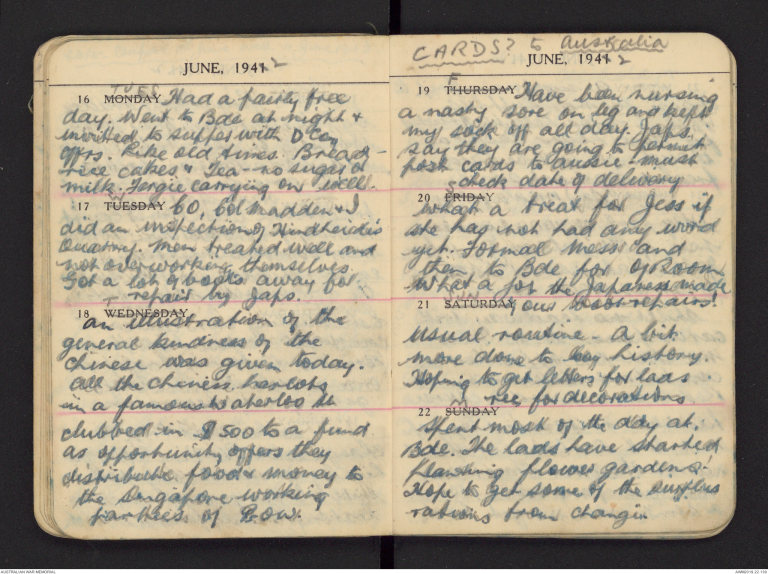 JUNE, 1941 2
TUES
16 MONDAY Had a fairly free
day. Went to Bde at night &
invited to supper with D Coy
Offrs. Like old times. Bread -
rice cakes & Tea - no sugar or
milk. Fergie carrying on well.
W
17 TUESDAY CO, Col Madden & I
did an inspection of
Quarry. Men treated well and
not overworking themselves.
Got a lot of boots away for
repair by Japs.
T
18 WEDNESDAY
an illustration of the
general kindness of the
Chinese was given today.
All the Chinese harlots
in a famous Waterloo St
clubbed in $500 to a fund
as opportunity offers they
distribute food & money to
the Singapore working
parties of P.O.W.
CARDS? to Australia
JUNE, 1941 2
F
19 THURSDAY Have been nursing
a nasty sore on leg and kept
my sock off all day. Japs
say they are going to permit
post cards to Aussie - must
check date of delivery
S
20 FRIDAY
What a treat for Jess if
she has not had any word
yet. Formal Mess and
then to Bde for
What a job the Japanese made
21 SATURDAY of our boot repairs!
Usual routine - A bit
more done to Coy history.
Hoping to get letters for lads
rec. for decorations
22 SUNDAY
Spent most of the day at
Bde. The lads have started
planting flower gardens.
Hope to get some of the surplus
rations from Changi
AUSTRALIAN WAR MEMORIAL